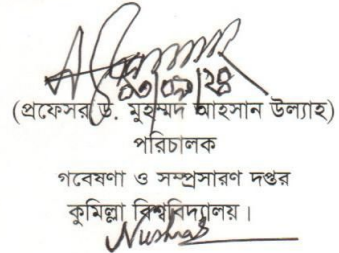 (প্রফেসর ড. মুহম্মদ আহসান উল্যাহ)
পরিচালক
গবেষণা ও সম্প্রসারণ দপ্তর
কুমিল্লা বিশ্ববিদ্যালয়।